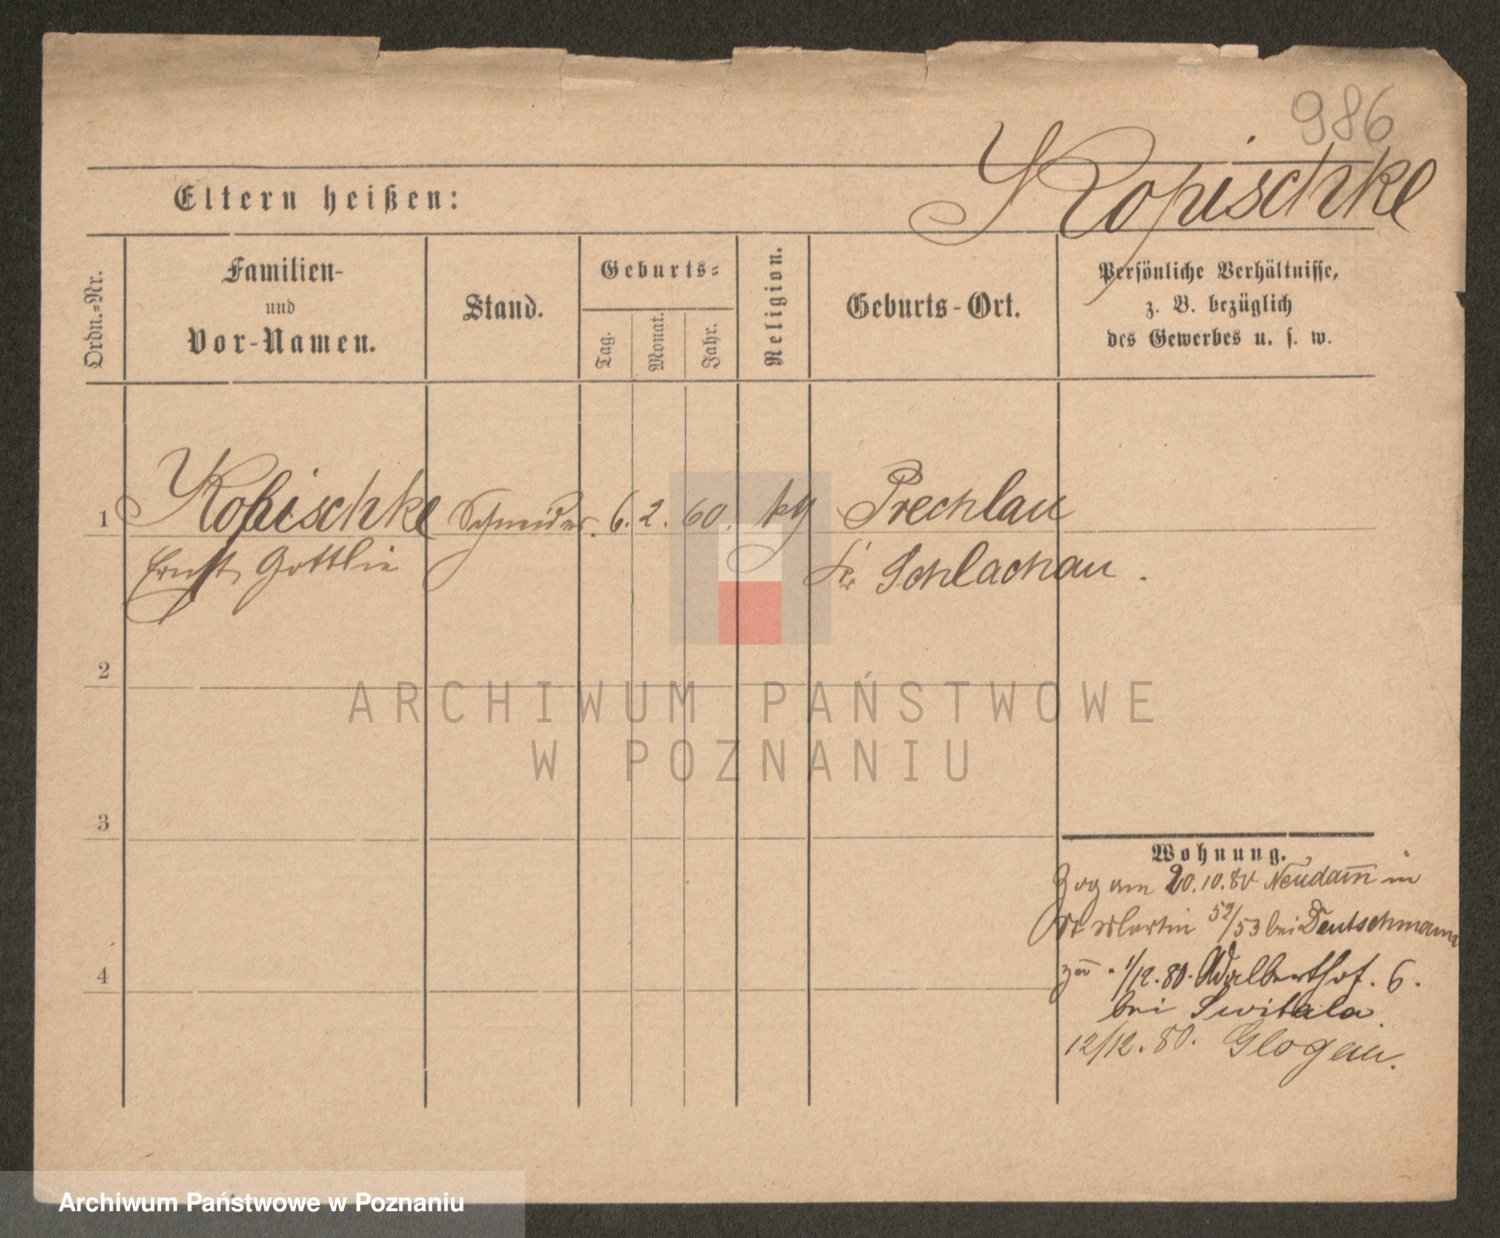 986
Kopischke
Eltern heißen:
Ordn.-Nr.
Familien-
und
Vor-Namen.
Stand.
Geburts-
Tag.
Monat.
Jahr.
Religion.
Geburts-Ort.
Persönliche Verhältnisse,
z. B. bezüglich
des Gewerbes u. s. w.
1 Kopischke Schneider. 6. 2. 60. Prechlau
Ernst Gottlie Kr Schlochau.
2
3
4
Wohnung.
Zog am 20.10.80 Neudam̅ in
St Martin 52/53 bei Deutschmann
1/12.80. Adalberthof. 6.
bei Switala
12/12. 80. Glogau.
ARCHIWUM PAŃSTWOWE
W POZNANIU
Archiwum Państwowe w Poznaniu